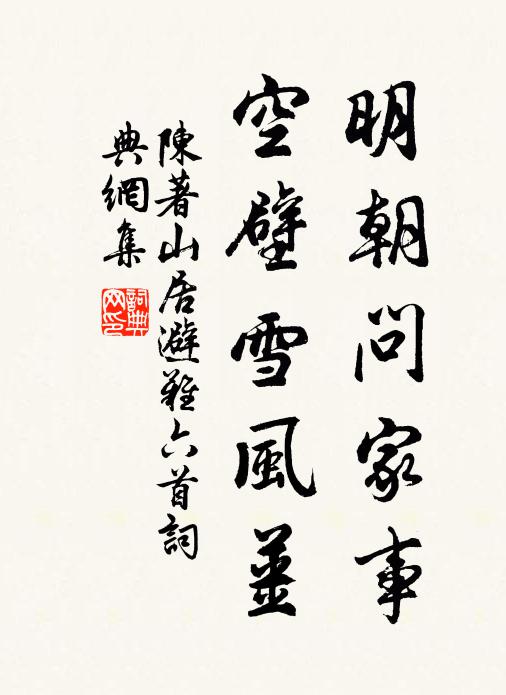 明朝問家事
空壁雪風
陳著山居避難六首詞
典網集
詞典
网印